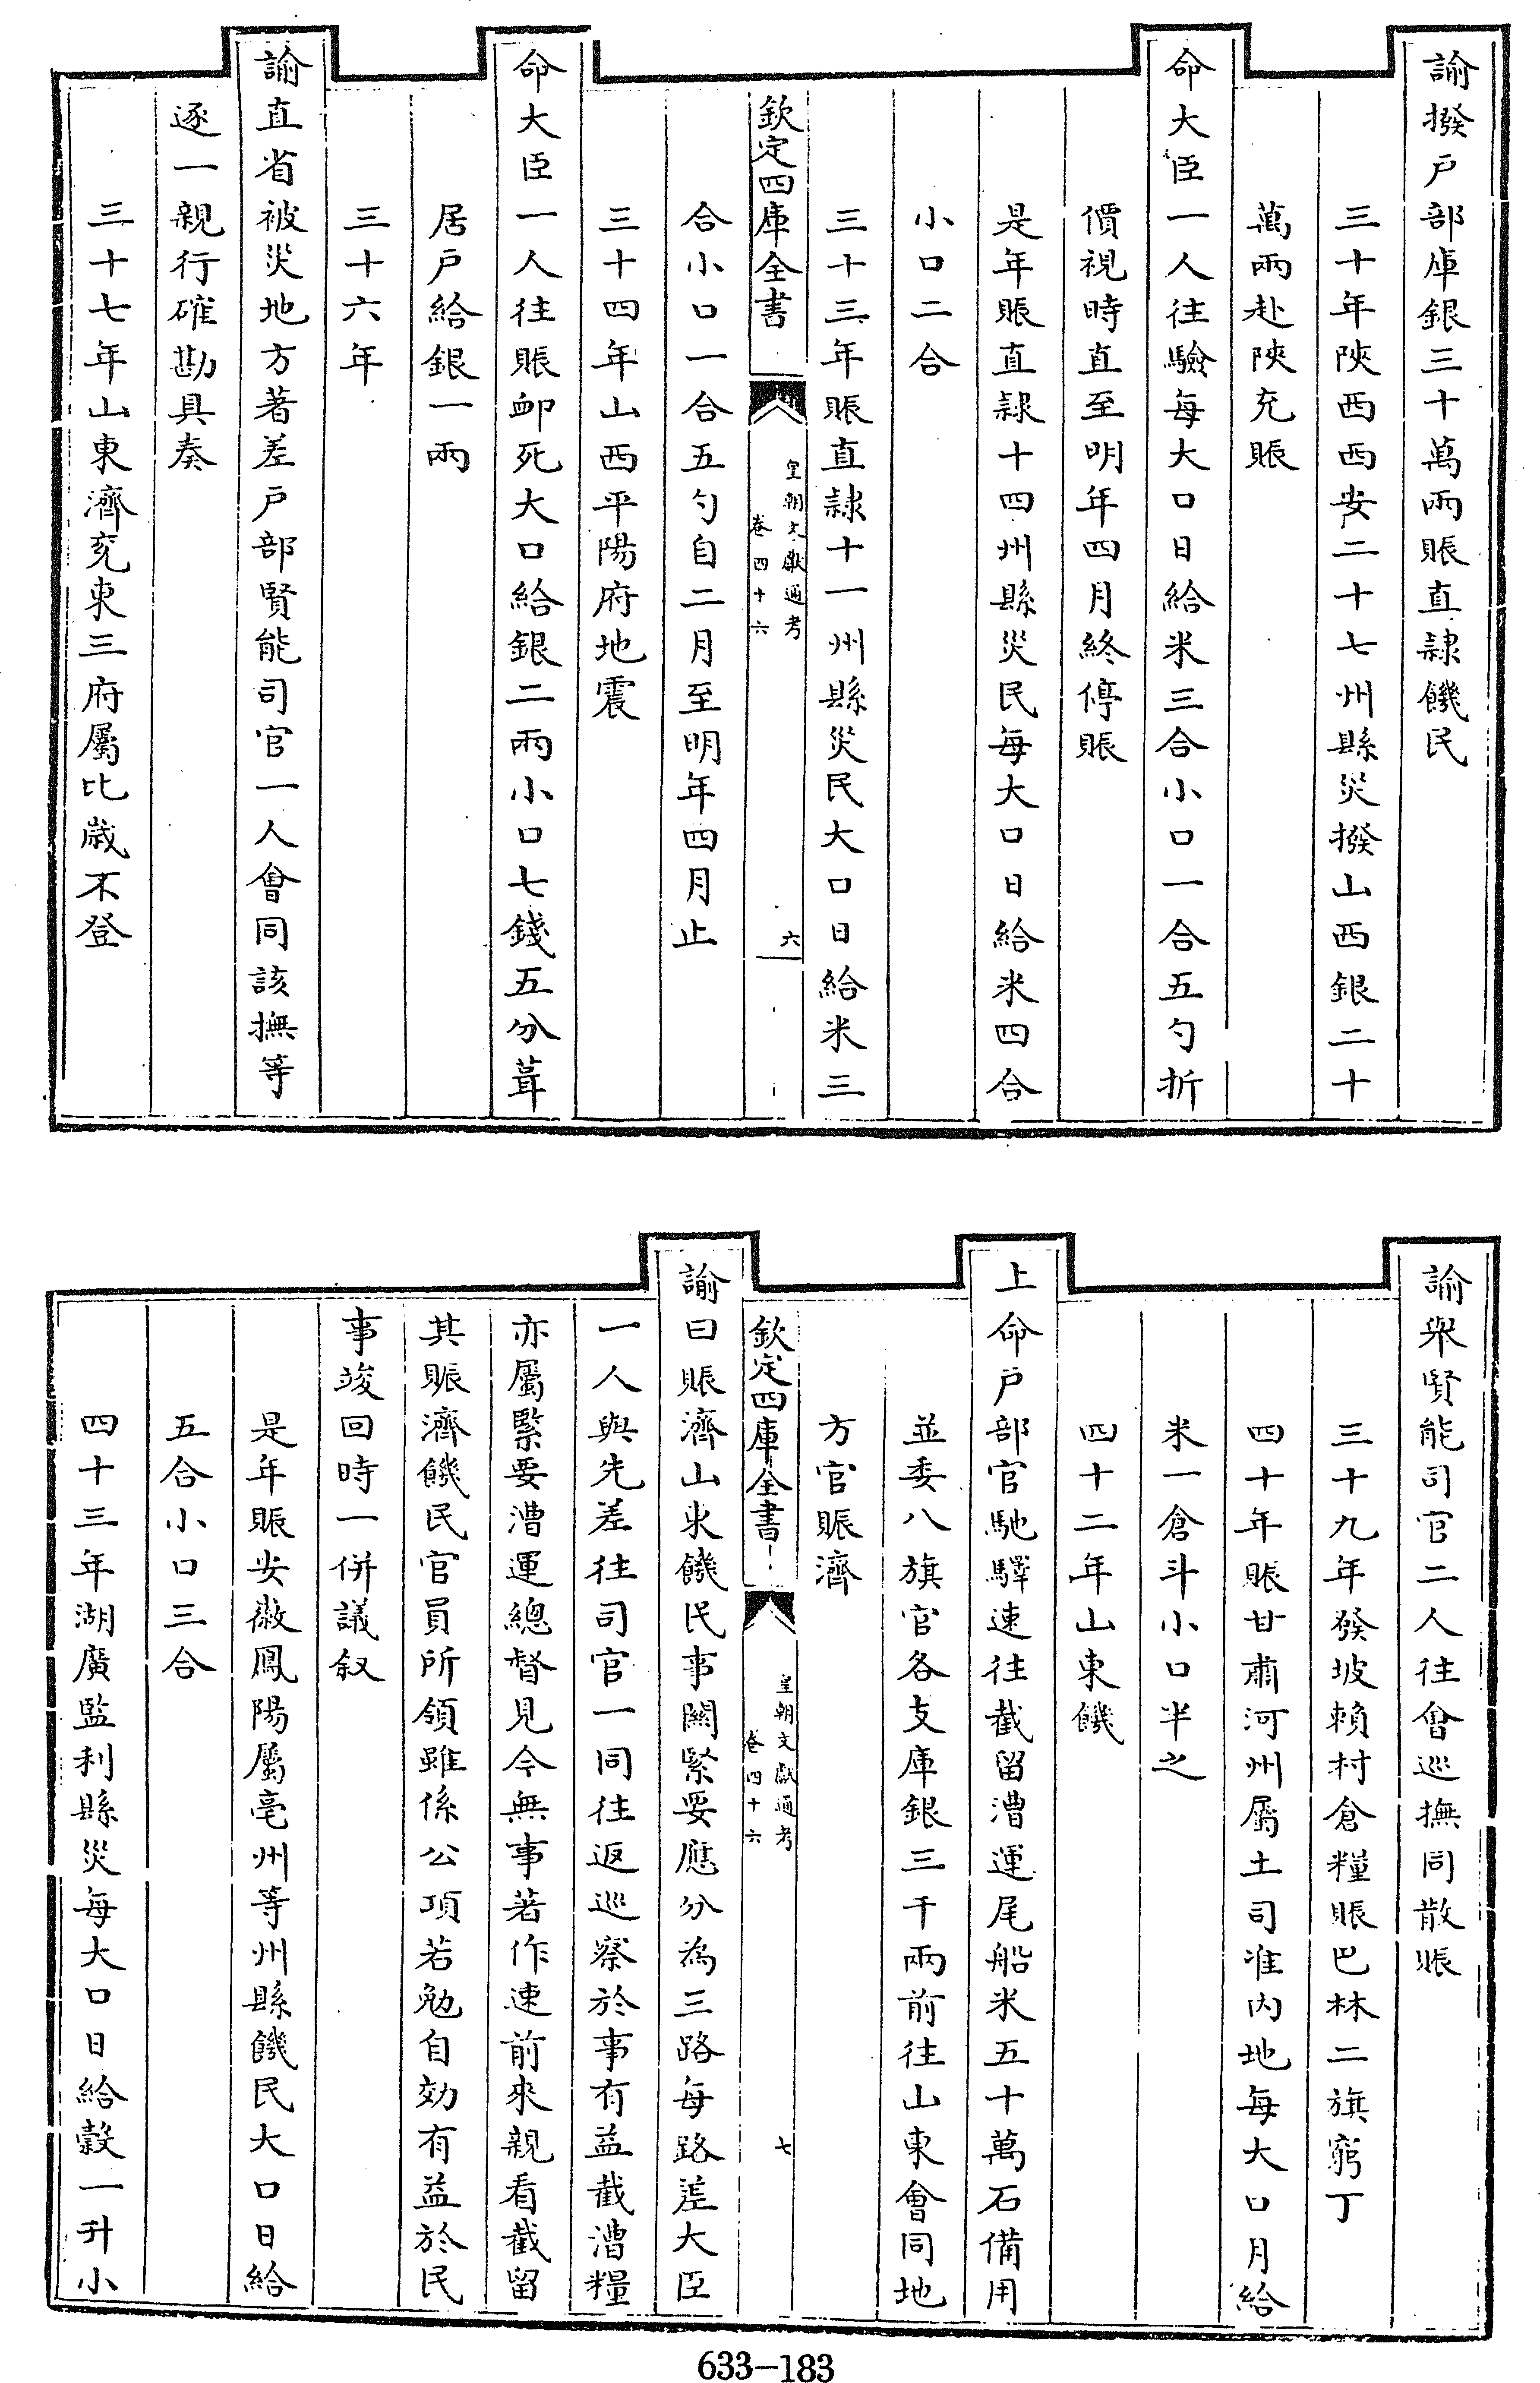 諭撥戶部庫銀三十萬兩賑直隷饑民
三十年陜西西安二十七州縣災撥山西銀二十
萬兩赴陜充賑
命大臣一人往驗每大口日給米三合小口一合五勺折
價視時直至明年四月終停賑
是年賑直隷十四州縣災民每大口日給米四合
小口二合
三十三年賑直隷十一州縣災民大口日給米三
欽定四庫全書
皇朝文獻通考
卷四十六
六
合小口一合五勺自二月至明年四月止
三十四年山西平陽府地震
命大臣一人往賑卹死大口給銀二兩小口七錢五分葺
居戶給銀一兩
三十六年
諭直省被災地方著差戶部賢能司官一人會同該撫等
逐一親行確勘具奏
三十七年山東濟兗東三府屬比歲不登
諭舉賢能司官二人往會巡撫同散賑
三十九年發坡賴村倉糧賑巴林二旗窮丁
四十年賑甘肅河州屬土司准內地每大口月給
米一倉斗小口半之
四十二年山東饑
上命戶部官馳驛速往截留漕運尾船米五十萬石備用
並委八旗官各支庫銀三千兩前往山東會同地
方官賑濟
欽定四庫全書
皇朝文獻通考
卷四十六
七
諭曰賑濟山東饑民事關緊要應分為三路每路差大臣
一人與先差往司官一同往返巡察於事有益截漕糧
亦屬緊要漕運總督見今無事著作速前來親看截留
其賑濟饑民官員所領雖係公項若勉自効有益於民
事竣回時一併議叙
是年賑安徽鳳陽屬亳州等州縣饑民大口日給
五合小口三合
四十三年湖廣監利縣災每大口日給穀一升小
633-183